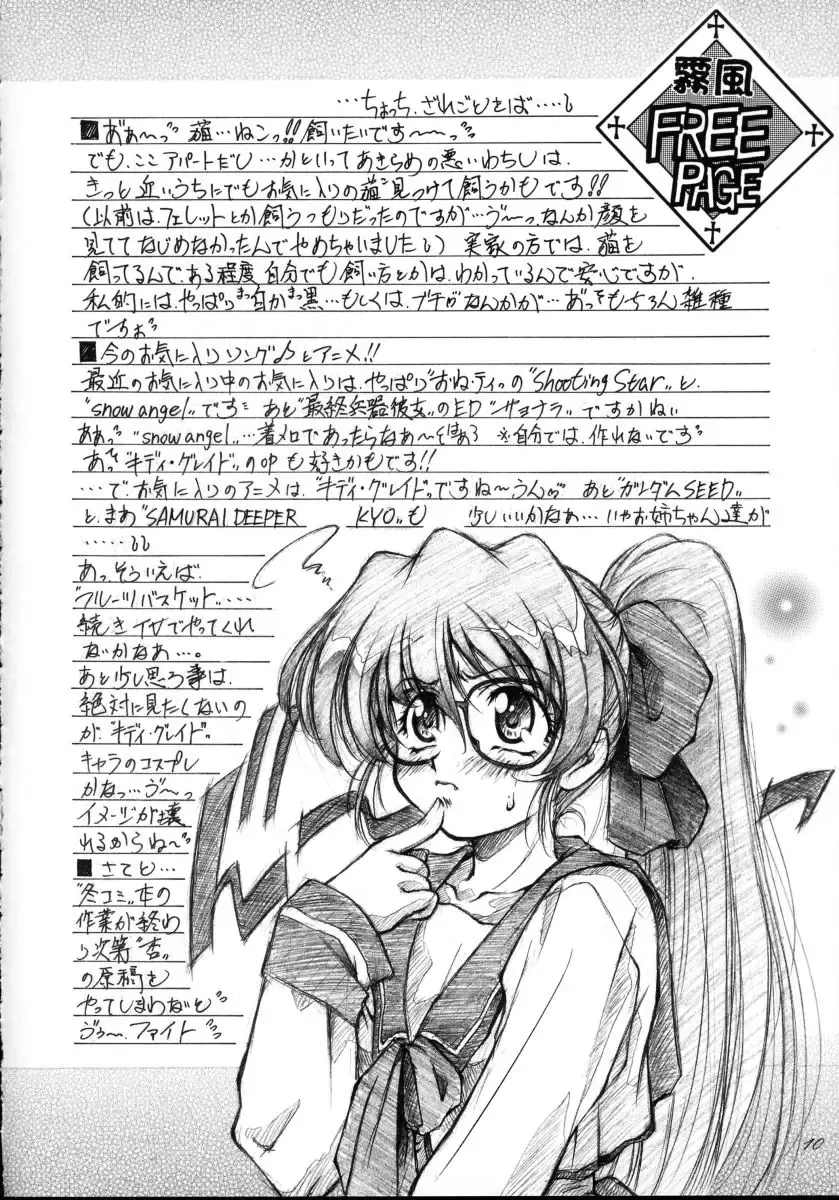 霧風
FREE
PAGE
…ちょっち、ざれごとをば……
■おぁ〜っ 猫…ねこっ!!飼いたいです〜〜っ
でも、ここアパートだし…かといってあきらめの悪いわちしは、
きっと近いうちにでもお気に入りの猫見つけて飼うかもです!!
(以前は、フェレットとか飼うつもりだったのですが…ゔ〜っなんか顔を
見ててなじめなかったんでやめちゃいました) 実家の方では、猫を
飼ってるんで、ある程度自分でも飼い方とかは、わかっているんで安心ですが、
私的には、やっぱりまっ白かまっ黒…もしくは、ブチがなんかが…あっそもちろん雑種
でーすぉ
■今のお気に入りソング♪とアニメ!!
最近のお気に入り中のお気に入りは、やっぱり"おね・ティ"の"Shooting Star"と、
"snow angel"です あと"最終兵器彼女"のED"サヨナラ"ですかねぃ
ああっ"snow angel"…着メロであったらなぁ〜 ※自分では、作れないです
あっ"キディ・グレイド"のOPも好きかもです!!
…で、お気に入りのアニメは、"キディ・グレイド"ですね〜うん あと"ガンダムSEED"
と、まぁ"SAMURAI DEEPER KYO"も 少しいいかなぁ…いゃお姉ちゃん達が
……
あっ、そういえば、
"フルーツバスケット"……
続きTVでやってくれ
ないかなぁ…。
あと少し思う事は、
絶対に見たくないの
が、"キディ・グレイド"
キャラのコスプレ
かなっ…ゔ〜っ
イメージが壊
れるからね〜
■さてと…
"冬コミ"本の
作業が終わ
り次第"杏"
の原稿を
やってしまわないと
ゔぅ〜、ファイト
10